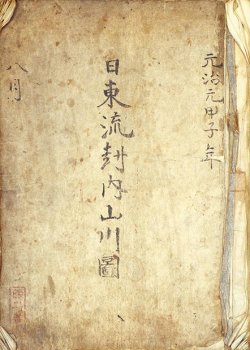 元治元甲子年
日東流耕内山川圖
八月